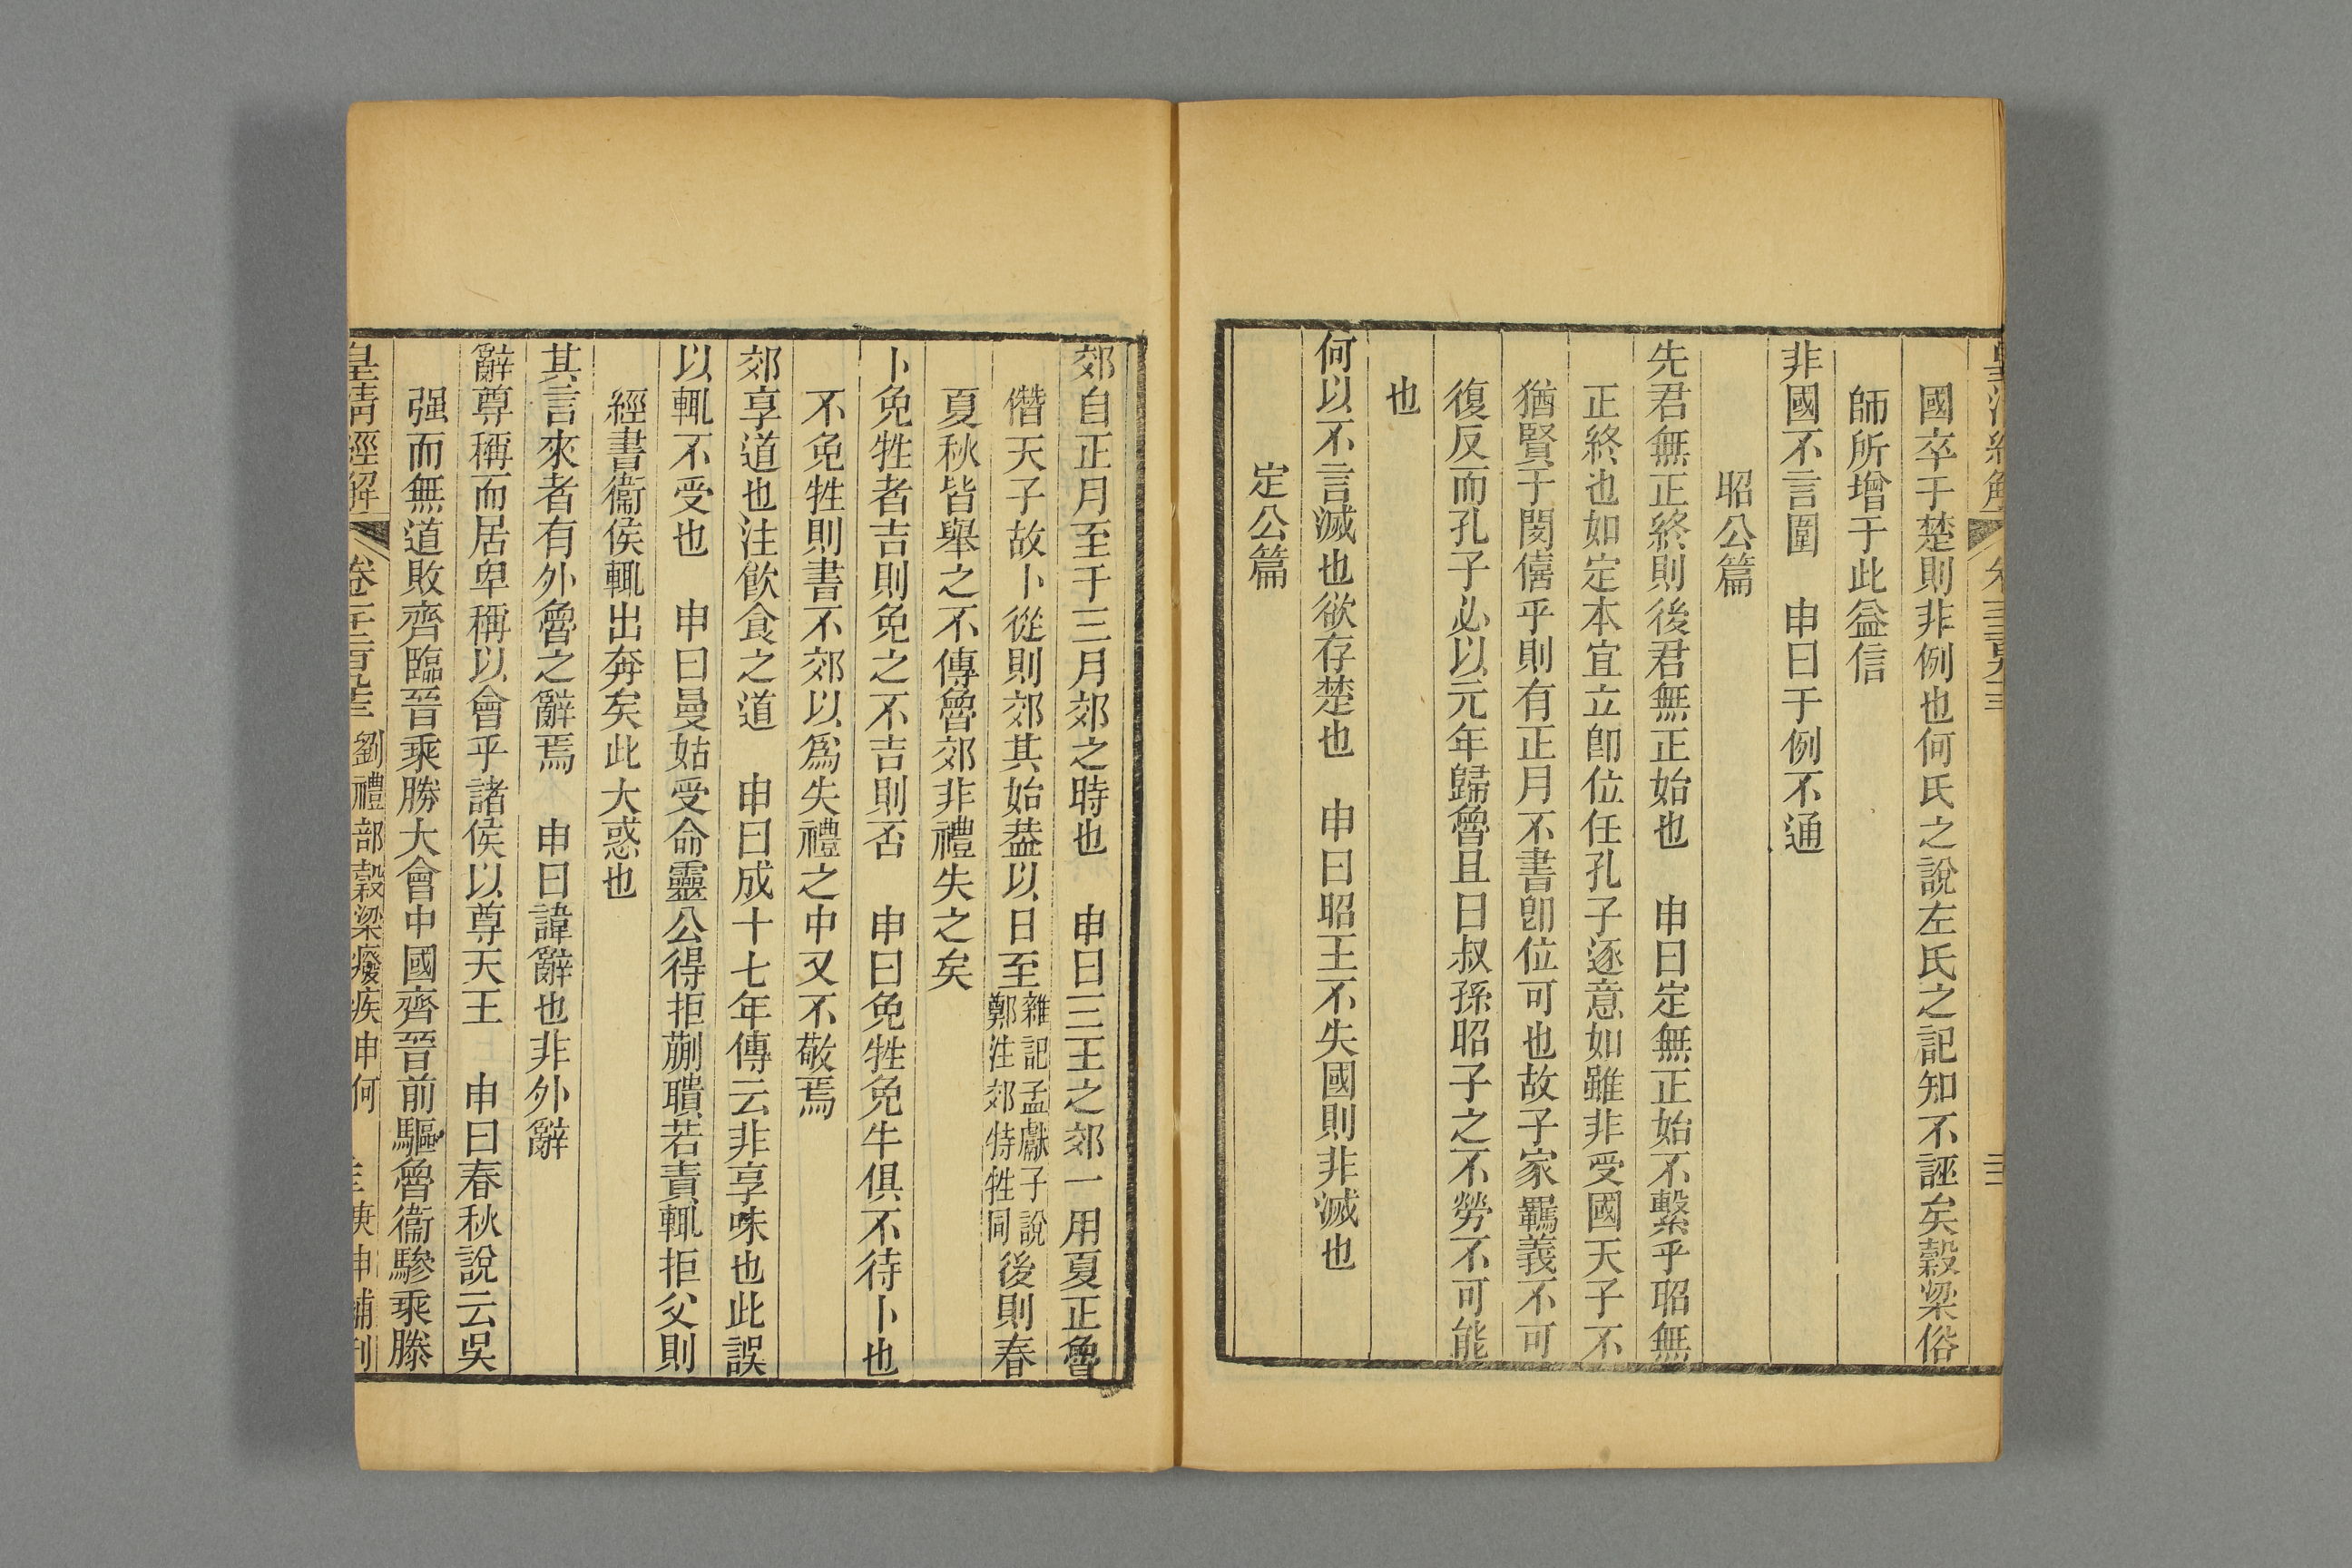 國卒于楚則非例也何氏之說左氏之記知不誣矣穀梁俗
師所增于此益信
非國不言圍　申曰于例不通
昭公篇
先君無正終則後君無正始也　申曰定無正始不繫乎昭無
正終也如定本宜立卽位任孔子逐意如雖非受國天子不
猶賢于閔僖乎則有正月不書卽位可也故子家羈義不可
復反而孔子必以元年歸魯且曰叔孫昭子之不勞不可能
也
何以不言滅也欲存楚也　申曰昭王不失國則非滅也
定公篇
郊自正月至于三月郊之時也　申曰三王之郊一用夏正魯
僭天子故卜從則郊其始葢以日至雜記孟獻子說鄭注郊特牲同後則春
夏秋皆舉之不傳魯郊非禮失之矣
卜免牲者吉則免之不吉則否　申曰免牲免牛俱不待卜也
不免牲則書不郊以爲失禮之中又不敬焉
郊享道也注飮食之道　申曰成十七年傳云非享味也此誤
以輒不受也　申曰曼姑受命靈公得拒蒯聵若責輒拒父則
經書衞侯輒出奔矣此大惑也
其言來者有外魯之辭焉　申曰諱辭也非外辭
辭尊稱而居卑稱以會乎諸侯以尊天王　申曰春秋說云吳
强而無道敗齊臨晉乘勝大會中國齊晉前驅魯衞驂乘滕
皇清經解　卷　劉禮部穀梁癈疾申何　庚申補刊